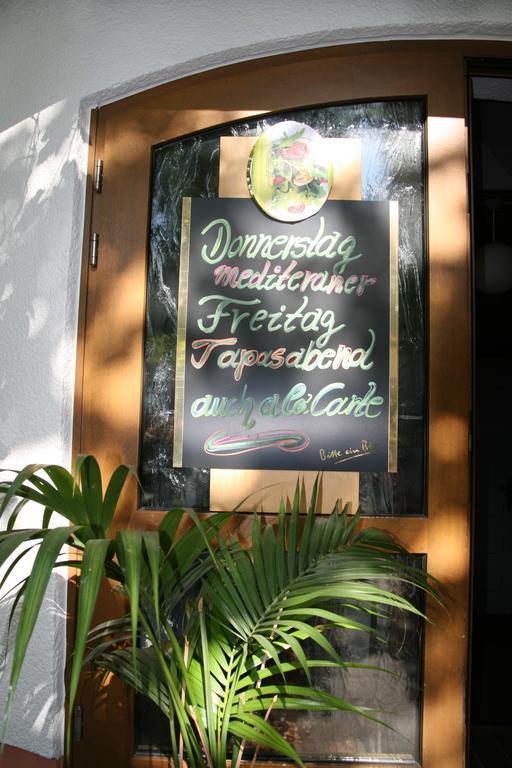 Donnerstag
mediteraner
Freitag
Tapasabend
auch a là Carte
Bitte ein Bit